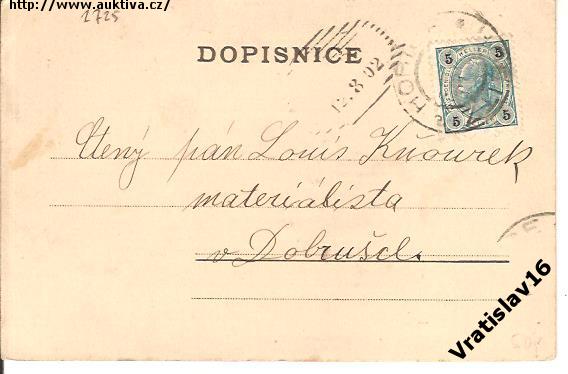 Zdroj: http://www.auktiva.cz/
1725
DOPISNICE
12.8.02
5 5
5 5
Ctený pán Louis Kňourek
materiálista
v Dobrušce.
Vratislav16